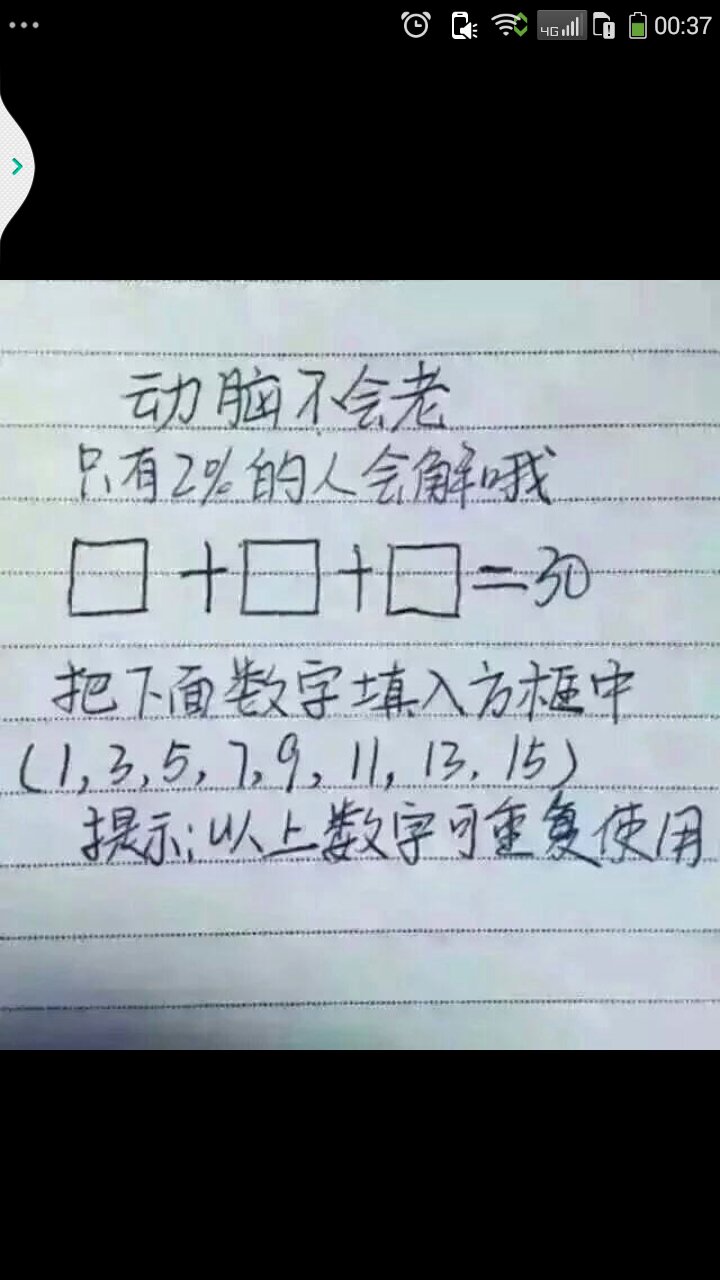 00:37
4G
动脑不会老
只有2%的人会解哦
□+□+□=30
把下面数字填入方框中
(1,3,5,7,9,11,13,15)
提示:以上数字可重复使用